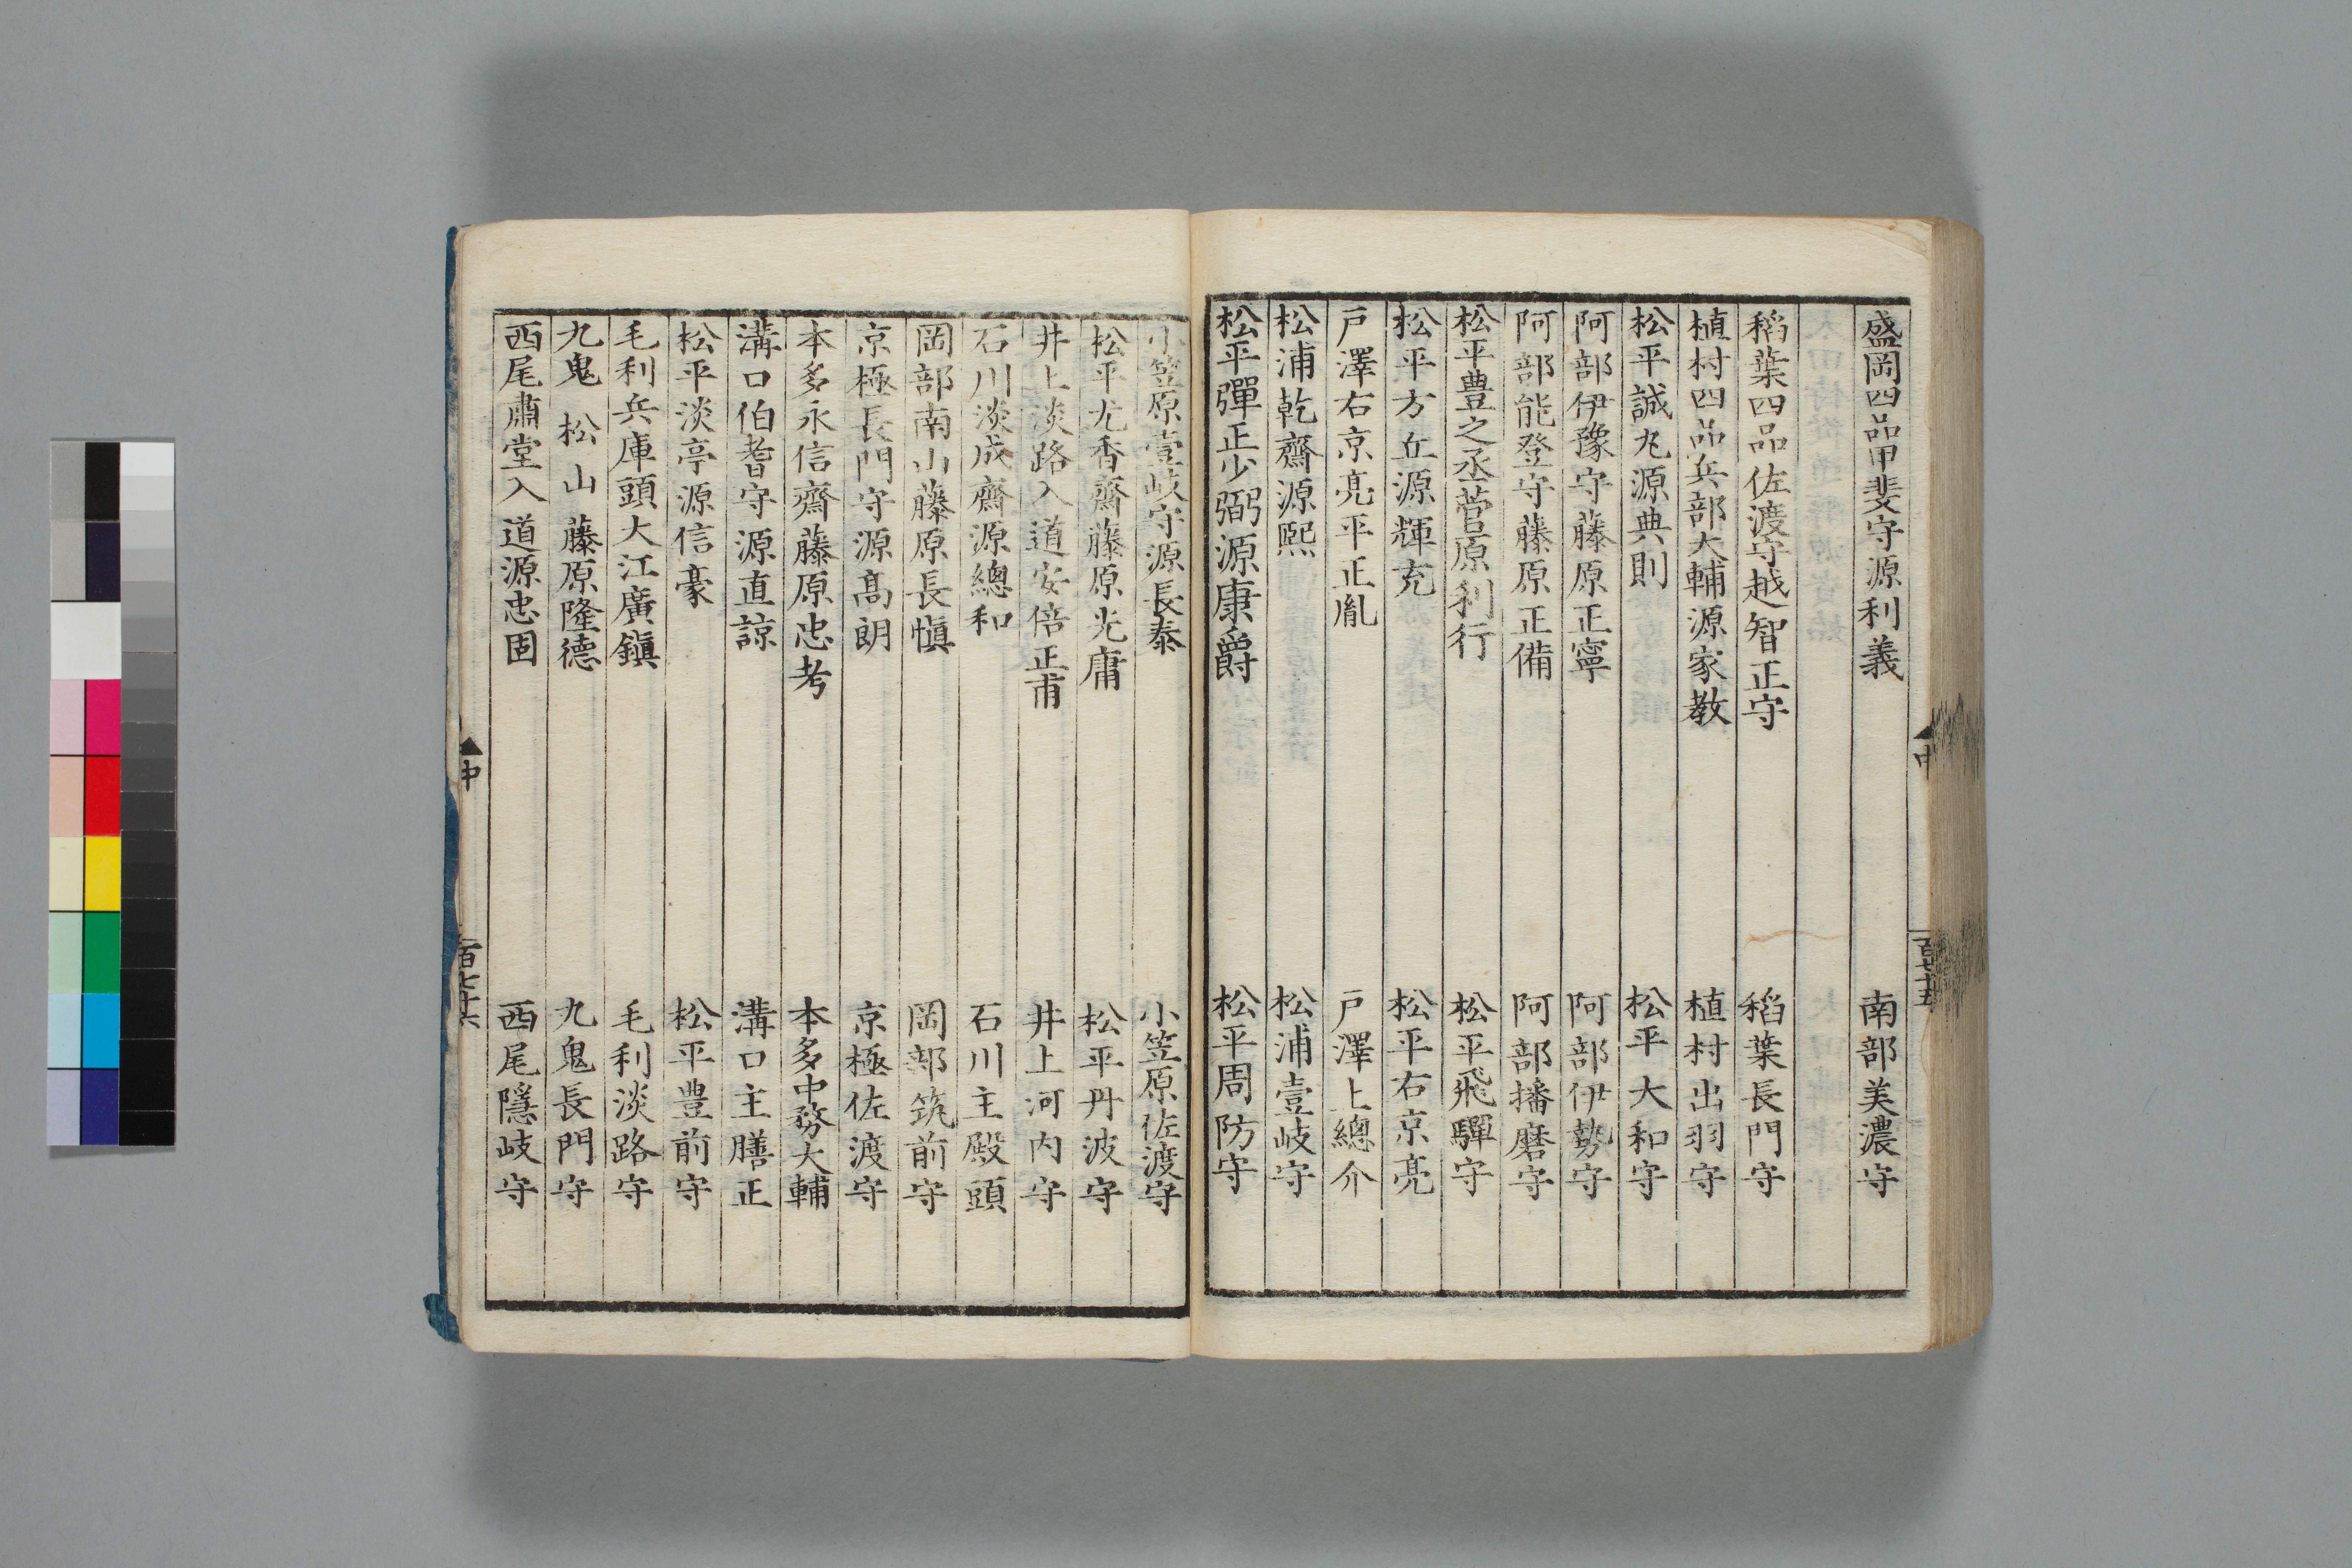 盛岡四品甲斐守源利義 南部美濃守
稻葉四品佐渡守越智正守 稻葉長門守
植村四品兵部大輔源家教 植村出羽守
松平誠丸源典則 松平大和守
阿部伊豫守藤原正寧 阿部伊勢守
阿部能登守藤原正備 阿部播磨守
松平豊之丞菅原利行 松平飛驒守
松平方丘源輝充 松平右京亮
戸澤右京亮平正胤 戸澤上總介
松浦乾齋源熙 松浦壹岐守
松平彈正少弼源康爵 松平周防守
中
百七十五
小笠原壹岐守源長泰 小笠原佐渡守
松平尤香齋藤原光庸 松平丹波守
井上淡路入道安倍正甫 井上河内守
石川淡成齋源總和 石川主殿頭
岡部南山藤原長愼 岡部筑前守
京極長門守源高朗 京極佐渡守
本多永信齋藤原忠考 本多中務大輔
溝口伯耆守源直諒 溝口主膳正
松平淡亭源信豪 松平豊前守
毛利兵庫頭大江廣鎭 毛利淡路守
九鬼松山藤原隆德 九鬼長門守
西尾肅堂入道源忠固 西尾隱岐守
中
百七十六